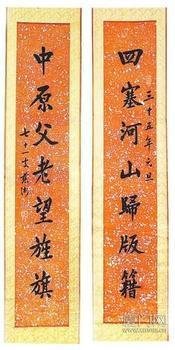 四塞河山歸版籍
三十五年元旦
中原父老望旌旗
七十一叟